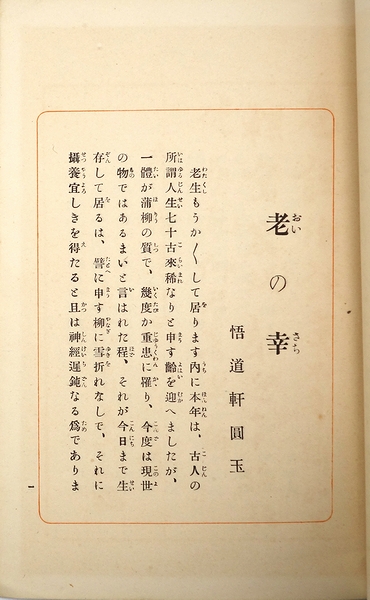 老の幸
悟道軒圓玉
老生もうか〱して居ります內に本年は、古人の
所謂人生七十古來稀なりと申す齡を迎へましたが、
一體が蒲柳の質で、幾度か重患に罹り、今度は現世
の物ではあるまいと言はれた程、それが今日まで生
存して居るは、譬に申す柳に雪折れなしで、それに
攝養宜しきを得たると且は神經遲鈍なる爲でありま
一